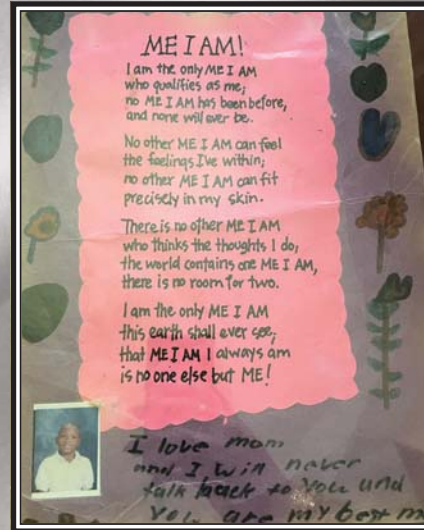 ME I AM!
I am the only ME I AM
who qualifies as me;
no ME I AM has been before,
and none will ever be.
No other ME I AM can feel
the feelings I've within;
no other ME I AM can fit
precisely in my skin.
There is no other ME I AM
who thinks the thoughts I do;
the world contains one ME I AM,
there is no room for two.
I am the only ME I AM
this earth shall ever see;
that ME I AM I always am
is no one else but ME!
I love mom
and I will never
talk back to you and
you are my best